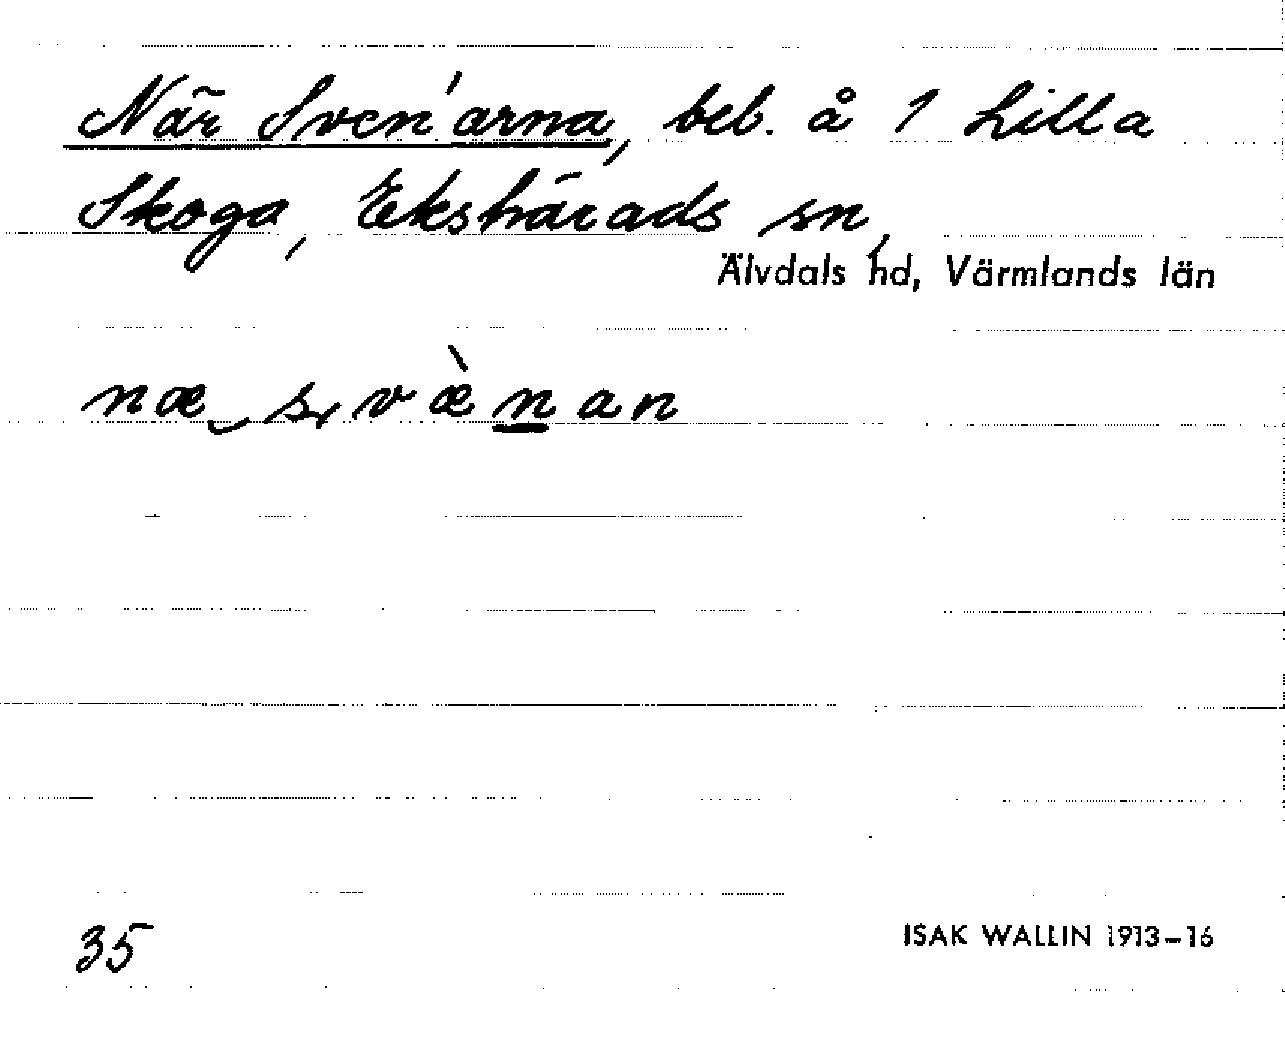 När Sven'arna, beb. å 1 Lilla
Skoga, Ekshärads sn,
Älvdals hd, Värmlands län
næ svæ̀nan
35
ISAK WALLIN 1913–16